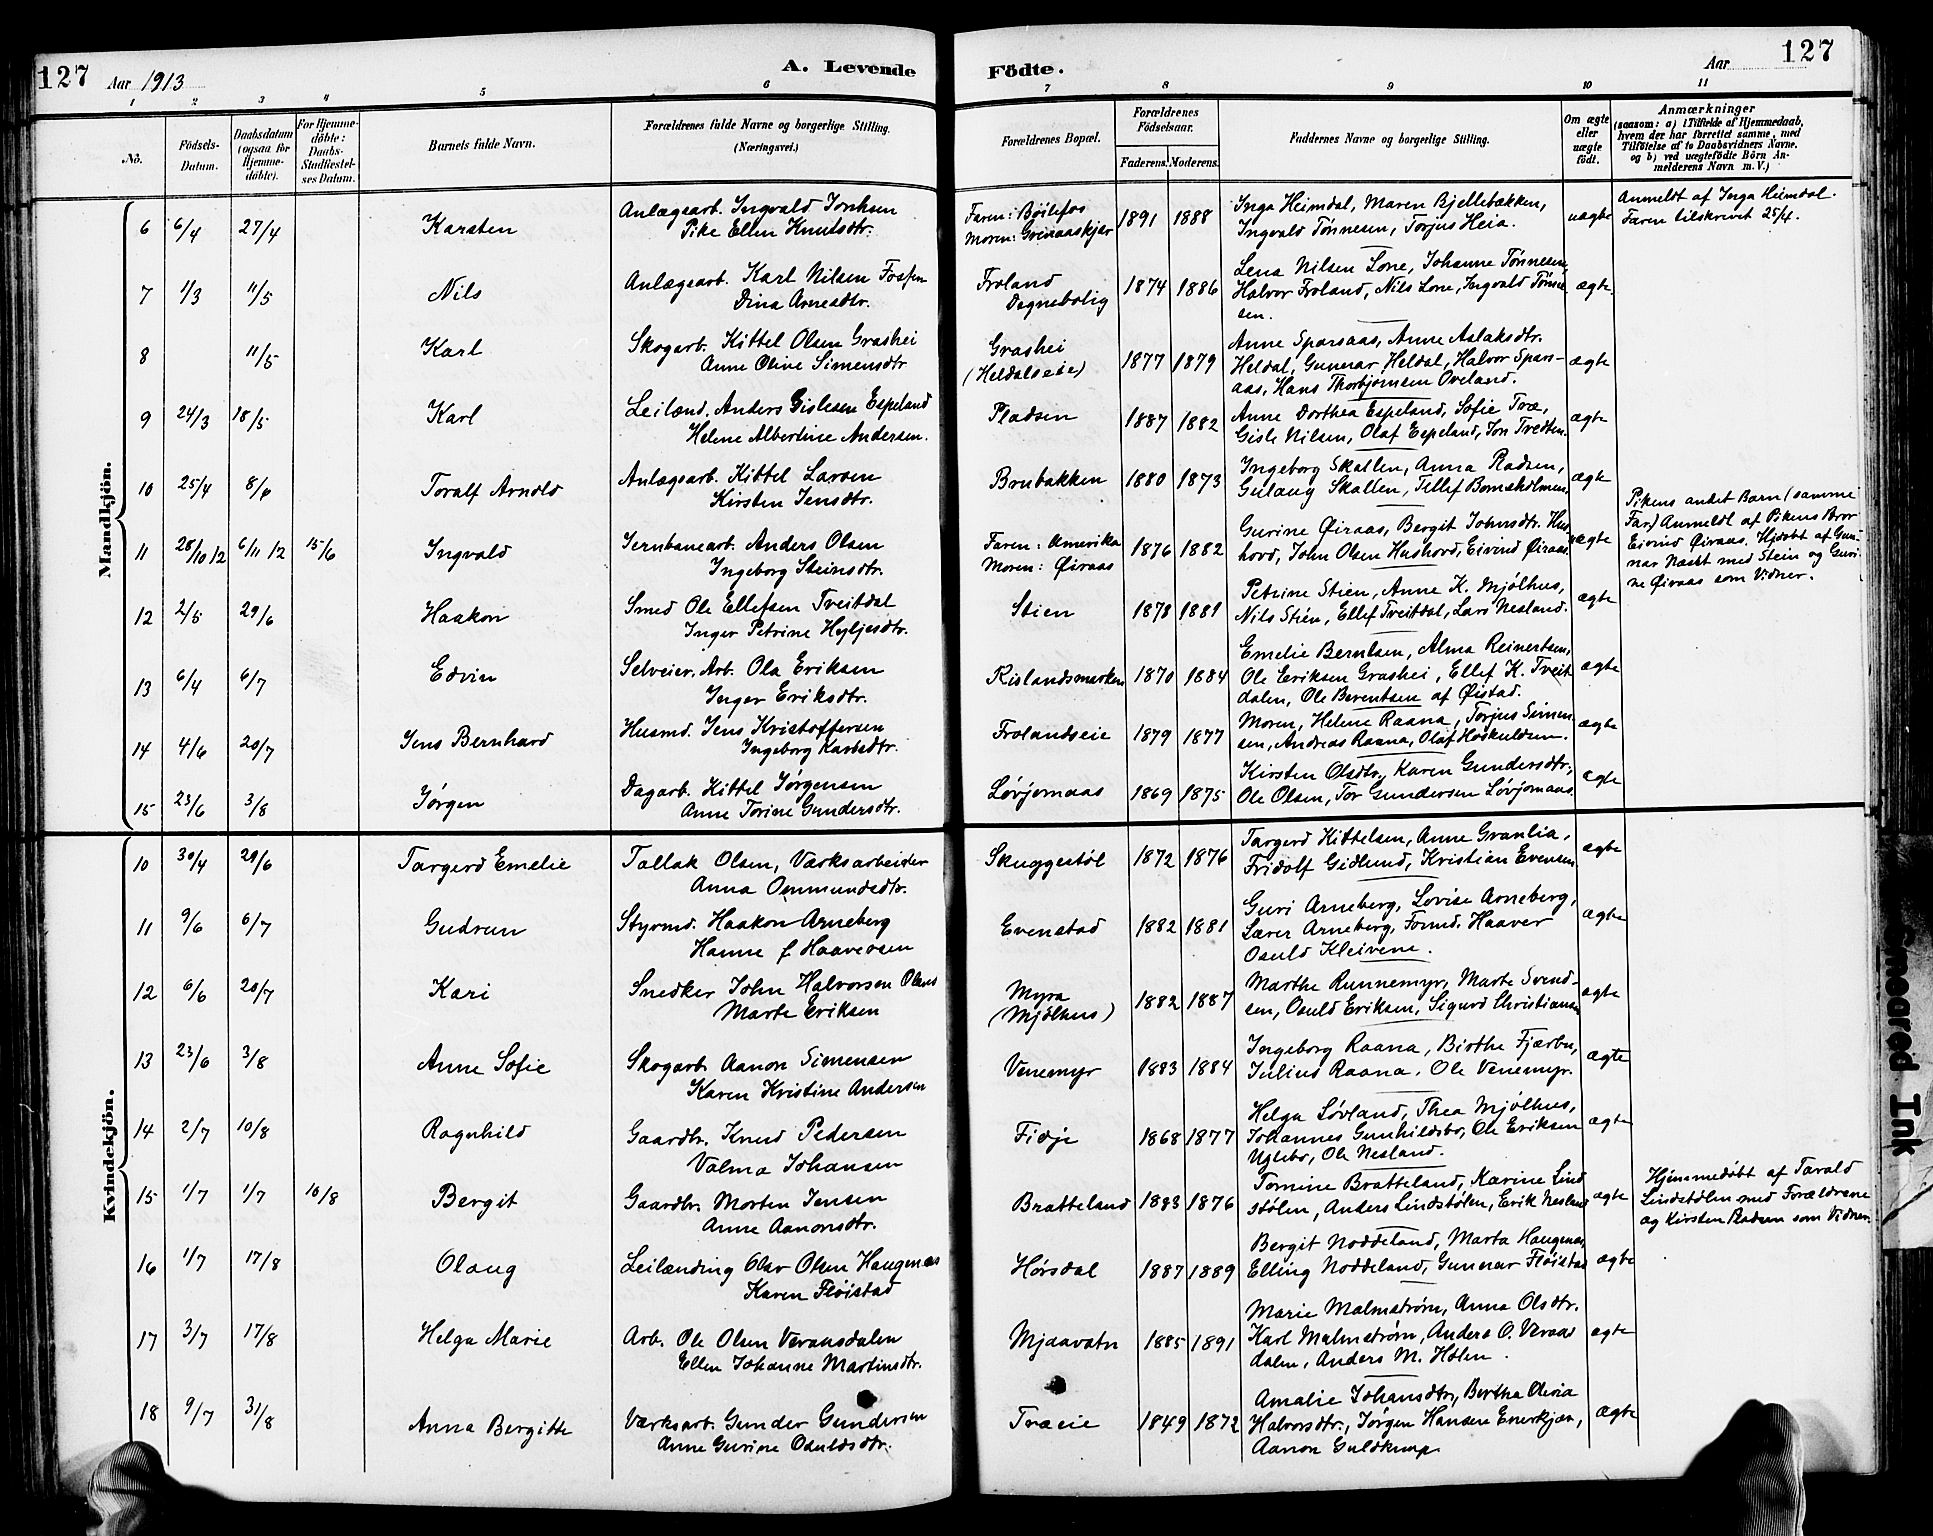 127 Aar 1913 A. Levende
1 2 3 4 5 6
No. Fødsels-Datum. Daabsdatum (ogsaa for Hjemmedøbte). For Hjemmedøbte: Daabs-Stadfæstelses Datum. Barnets fulde Navn. Forældrenes fulde Navne og borgerlige Stilling. (Næringsvei.)
Mandkjön.
6 6/4 27/4 Karsten Anlægsarb. Ingvald
Pike Ellen Knutsdtr.
7 1/3 11/5 Nils Anlægsarb. Karl Nilsen Fossen
Dina Arnesdtr.
8 11/5 Karl Skogarb. Kittel Olsen Grashei
Anne Olive Simensdtr
9 24/3 18/5 Karl Leilænd. Anders Gislesen Espeland
Helene Albertine Andersen.
10 25/4 8/6 Toralf Arnold Anlægsarb. Kittel Larsen
Kirsten Jensdtr.
11 28/10 12 6/11 12 15/6 Ingvald Jernbanearb. Anders Olsen
Ingeborg Steinsdtr.
12 2/5 29/6 Haakon Smed Ole Ellefsen Tveitdal
Inger Petrine
13 6/4 6/7 Edvin Selveier. Arb. Ola Eriksen
Inger Eriksdtr.
14 4/6 20/7 Jens Bernhard Husmd. Jens Kristoffersen
Ingeborg Karlsdtr.
15 23/6 3/8 Jørgen Dagarb. Kittel Jørgensen
Anne Torine Gundersdtr.
Kvindekjön.
10 30/4 29/6 Targerd Emelie Tallak Olsen, Værksarbeider
Anna Ommundsdtr.
11 9/6 6/7 Gudrun Styrmd. Haakon Arneberg
Hanne f Haaversen
12 6/6 20/7 Kari Snedker John Halvorsen Oland
Marte Eriksen
13 23/6 3/8 Anne Sofie Skogarb. Aanon Simensen
Karen Kristine Andersen
14 2/7 10/8 Ragnhild Gaardbr. Knud Pedersen
Valma Johansen
15 1/7 1/7 10/8 Bergit Gaardbr. Morten Jensen
Anne Aanonsdtr.
16 1/7 17/8 Olaug Leilænding Olav Olsen Haugenæs
Karen Fløistad
17 3/7 17/8 Helga Marie Arb. Ole Olsen Veraasdalen
Ellen Johanne Martinsdtr.
18 9/7 31/8 Anna Bergitte Værksarb. Gunder Gundersen
Anne Gurine Osuldsdtr.
Födte. Aar 127
7 8 9 10 11
Forældrenes Bopæl. Forældrenes Fødselsaar. Faderens. Moderens. Faddernes Navn og borgerlige Stilling. Om ægte eller uægte født. Anmærkninger
(saasom: a) i Tilfælde af Hjemmedaab, hvem der har forrettet samme, med Tilføielse af to Daabsvidners Navne, og b) ved uægtefødte Børn Anmelderens Navn m. V.)
Faren: Bøilefos 1891 1888 Inga Heimdal, Maren Bjellebækken, uægte Anmeldt af Inga Heimdal.
Moren: Ingvald Tønnesen, Torjus Heia. Faren tilskrevet 25/4.
Froland 1874 1886 Lena Nilsen Lone, Johanne Tønnesen, ægte
Degnebolig Halvor Froland, Nils Lone, Ingvald Tønne
sen.
Grashei 1877 1879 Anne Sparsaas, Anne Aslaksdtr. ægte
(Heldalseie) Heldal, Gunnar Heldal, Halvor Spars-
aas, Hans Thorbjørnsen Oveland.
Pladsen 1887 1882 Anne Dorthea Espeland, Sofie Træ, ægte
Gisle Nilsen, Olaf Espeland, Jon Tvedten.
Brubakken 1880 1873 Ingeborg Skallen, Anna Pladsen, ægte
Gulaug Skallen, Tellef Bomsholmen
Faren: Amerika 1876 1882 Gurine Øiraas, Bergit Johnsdtr. Hus uægte
Moren: Øiraas hovd, John Olsen Hushovd, Eivind Øiraas
Pikens andet Barn (samme
Far) Anmeldt af Pikens Bror
Eivind Øiraas. Hjdøbt af Gun-
nar Næset med Stein og Guri-
ne Øiraas som Vidner.
Stien 1878 1881 Petrine Stien, Anne K. Mjølhus, ægte
Nils Stien, Ellef Tveitdal, Lars Nesland.
Rislandsmarken 1870 1884 Emelie Berntsen, Alma Reinertsen, ægte
Ole Eriksen Grashei, Ellef K. Tveit
dalen, Ole Berentsen af Øistad.
Frolandseie 1879 1877 Moren, Helene Raana, Torjus Simen ægte
sen, Andreas Raana, Olaf Hoskuldsen.
Løvjomaas 1869 1875 Kirsten Olsdtr, Karen Gundersdtr, ægte
Ole Olsen, Tor Gundersen Løvjomaas
Skuggestøl 1872 1876 Targerd Kittelsen, Anne Granlia, ægte
Fridolf Gidlund, Kristian Evensen
Evenstad 1882 1881 Guri Arneberg, Lovise Arneberg, ægte
Lærer Arneberg, Formd. Haaver
Osuld Kleivene.
Myra 1882 1887 Marthe Runnemyr, Marte Svend- ægte
(Mjølhus) sen, Osuld Eriksen, Sigurd Christiansen
Venemyr 1883 1884 Ingeborg Raana, Birthe Fjærbu, ægte
Julius Raana, Ole Venemyr.
Fidje 1868 1877 Helga Løvland, Thea Mjølhus, ægte
Johannes Gunhildsbo, Ole Eriksen
Uglebo, Ole Nesland.
Bratteland 1883 1876 Tomine Bratteland, Karine Lind ægte
stølen, Anders Lindstølen, Erik Nesland
Hjemmedøbt af Tarald
Lindstølen med Forældrene
og Kirsten Pladsen som Vidner.
Hørsdal 1887 1889 Bergit Noddeland, Marta Haugenæs ægte
Elling Noddeland, Gunnar Fløistad
Mjaavatn 1885 1891 Marie Malmstrøm, Anna Olsdtr. ægte
Karl Malmstrøm, Anders O. Veraas
dalen, Anders M. Holen.
Træeie 1849 1872 Amalie Johansdtr, Bertha Olivia ægte
Halvorsdtr., Jørgen Hansen Enerkjæn,
Aanon
Smeared Ink